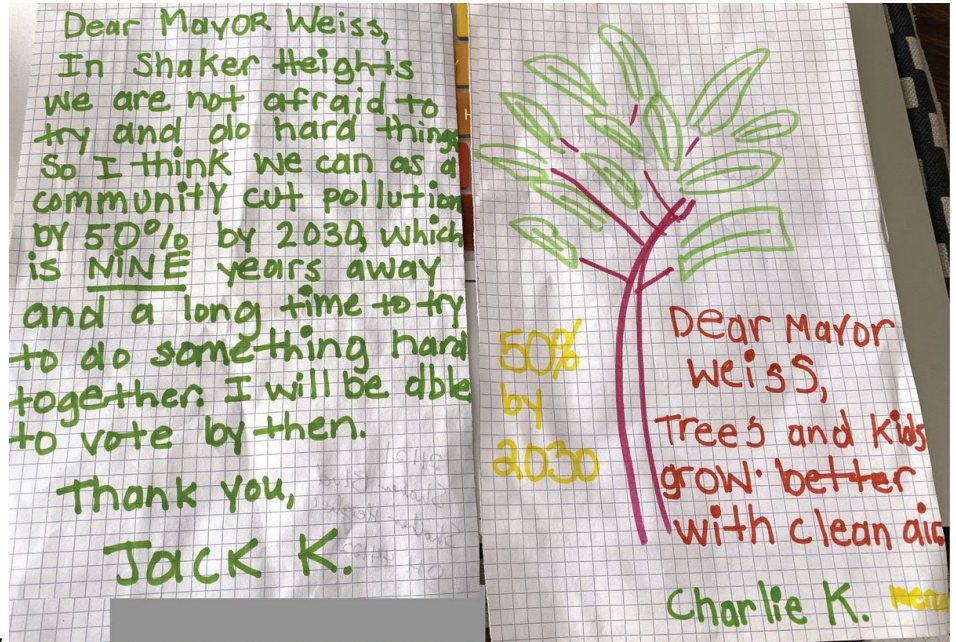 Dear Mayor Weiss,
In Shaker Heights
we are not afraid to
try and do hard things
So I think we can as a
community cut pollution
by 50% by 2030, which
is NINE years away
and a long time to try
to do something hard
together. I will be able
to vote by then.
Thank you,
Jack K.
50%
by
2030
Dear Mayor
Weiss,
Trees and kids
grow better
with clean air.
Charlie K.